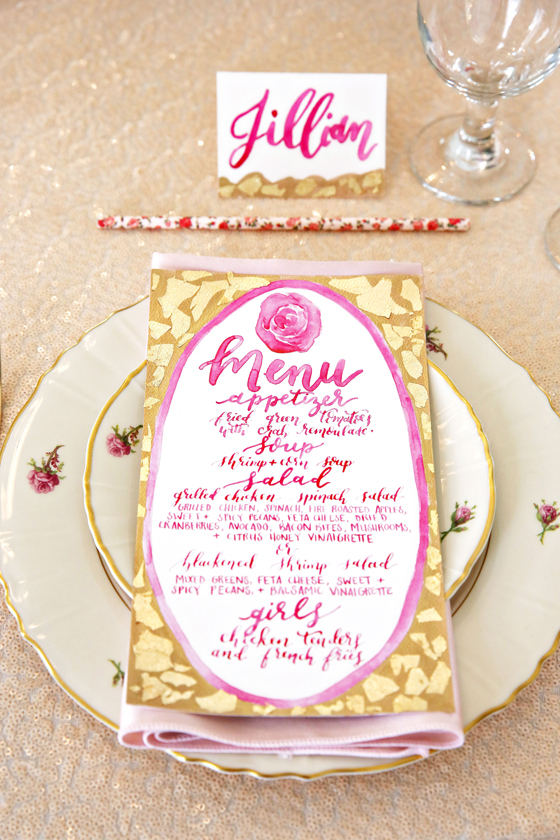 Jillian
Menu
appetizer
fried green tomatoes
with crab remoulade.
soup
shrimp + corn soup
salad
grilled chicken spinach salad
GRILLED CHICKEN, SPINACH, FIRE ROASTED APPLES,
SWEET + SPICY PECANS, FETA CHEESE, DRIED
CRANBERRIES, AVOCADO, BACON BITES, MUSHROOMS,
+ CITRUS HONEY VINAIGRETTE
or
blackened shrimp salad
MIXED GREENS, FETA CHEESE, SWEET +
SPICY PECANS, + BALSAMIC VINAIGRETTE
girls
chicken tenders
and french fries